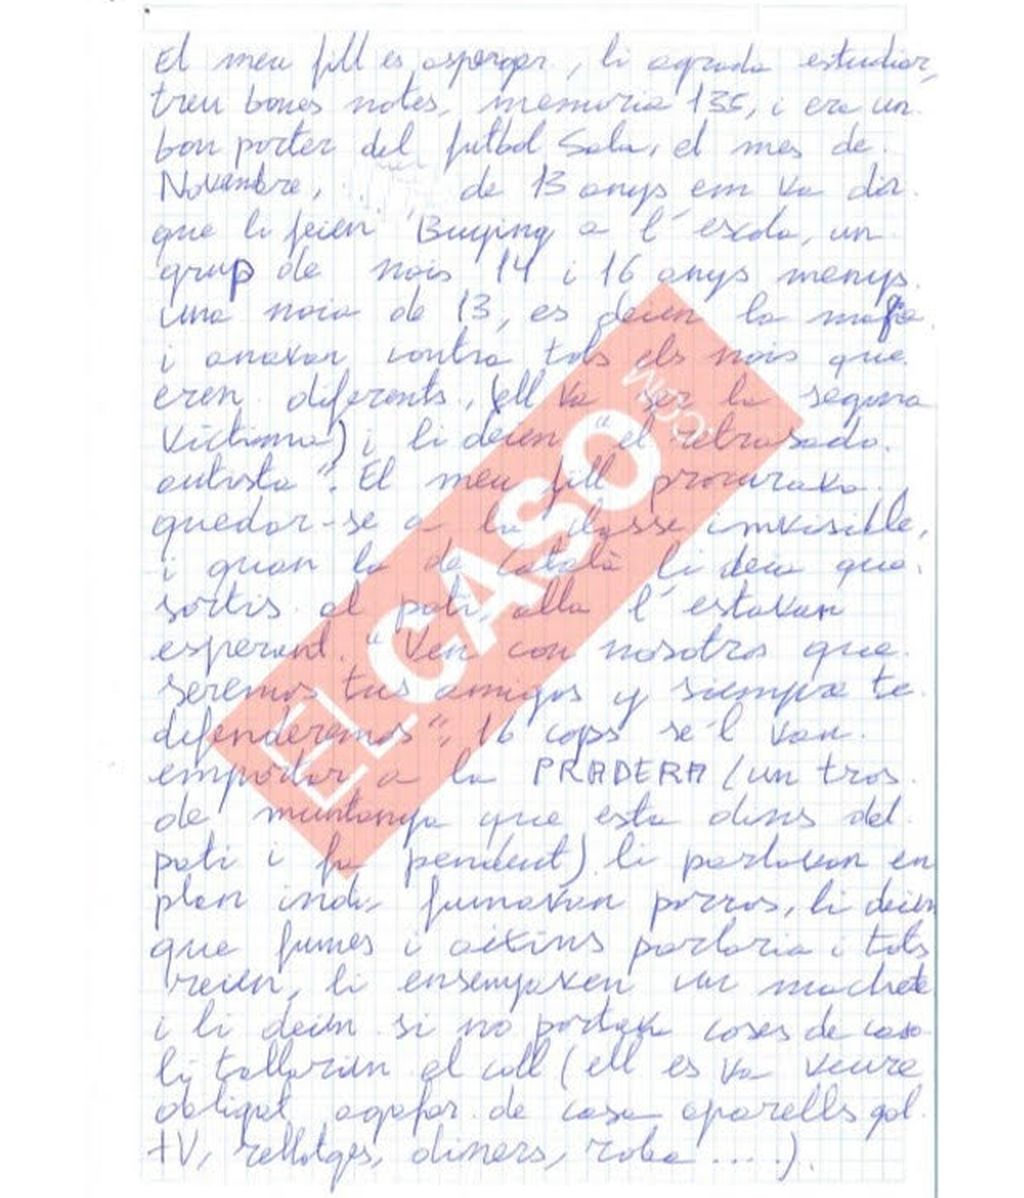 El meu fill es asperger, li agrada estudiar,
treu bones notes, memoria 135, i era un
bon porter del futbol Sala, el mes de
Novembre, de 13 anys em va dir
que li feien Buying a l'escola, un
grup de nois 14 i 16 anys menys
una noia de 13, es deien la mafia
i anavan contra tots els nois que
eren diferents, (ell va ser la segona
victima) i li deien "el retrasado
autista". El meu fill procurava
quedar-se a la classe invisible,
i quan la de Català li deia que
sortis al pati, alla l'estavan
esperant. "Ven con nosotros que
seremos tus amigos y siempre te
defenderemos", 16 cops se'l van
emportar a la PRADERA (un tros
de muntanya que esta dins del
pati i fa pendent) li parlavan en
plan indi, fumavan porros, li deien
que fumes i aixins parlaria i tots
reien, li ensenyaven un machete
i li deien si no portava coses de casa
li tallarian el coll (ell es va veure
obligat agafar de casa aparells gol
TV, rellotges, diners, roba ....).
EL CASO
.COM